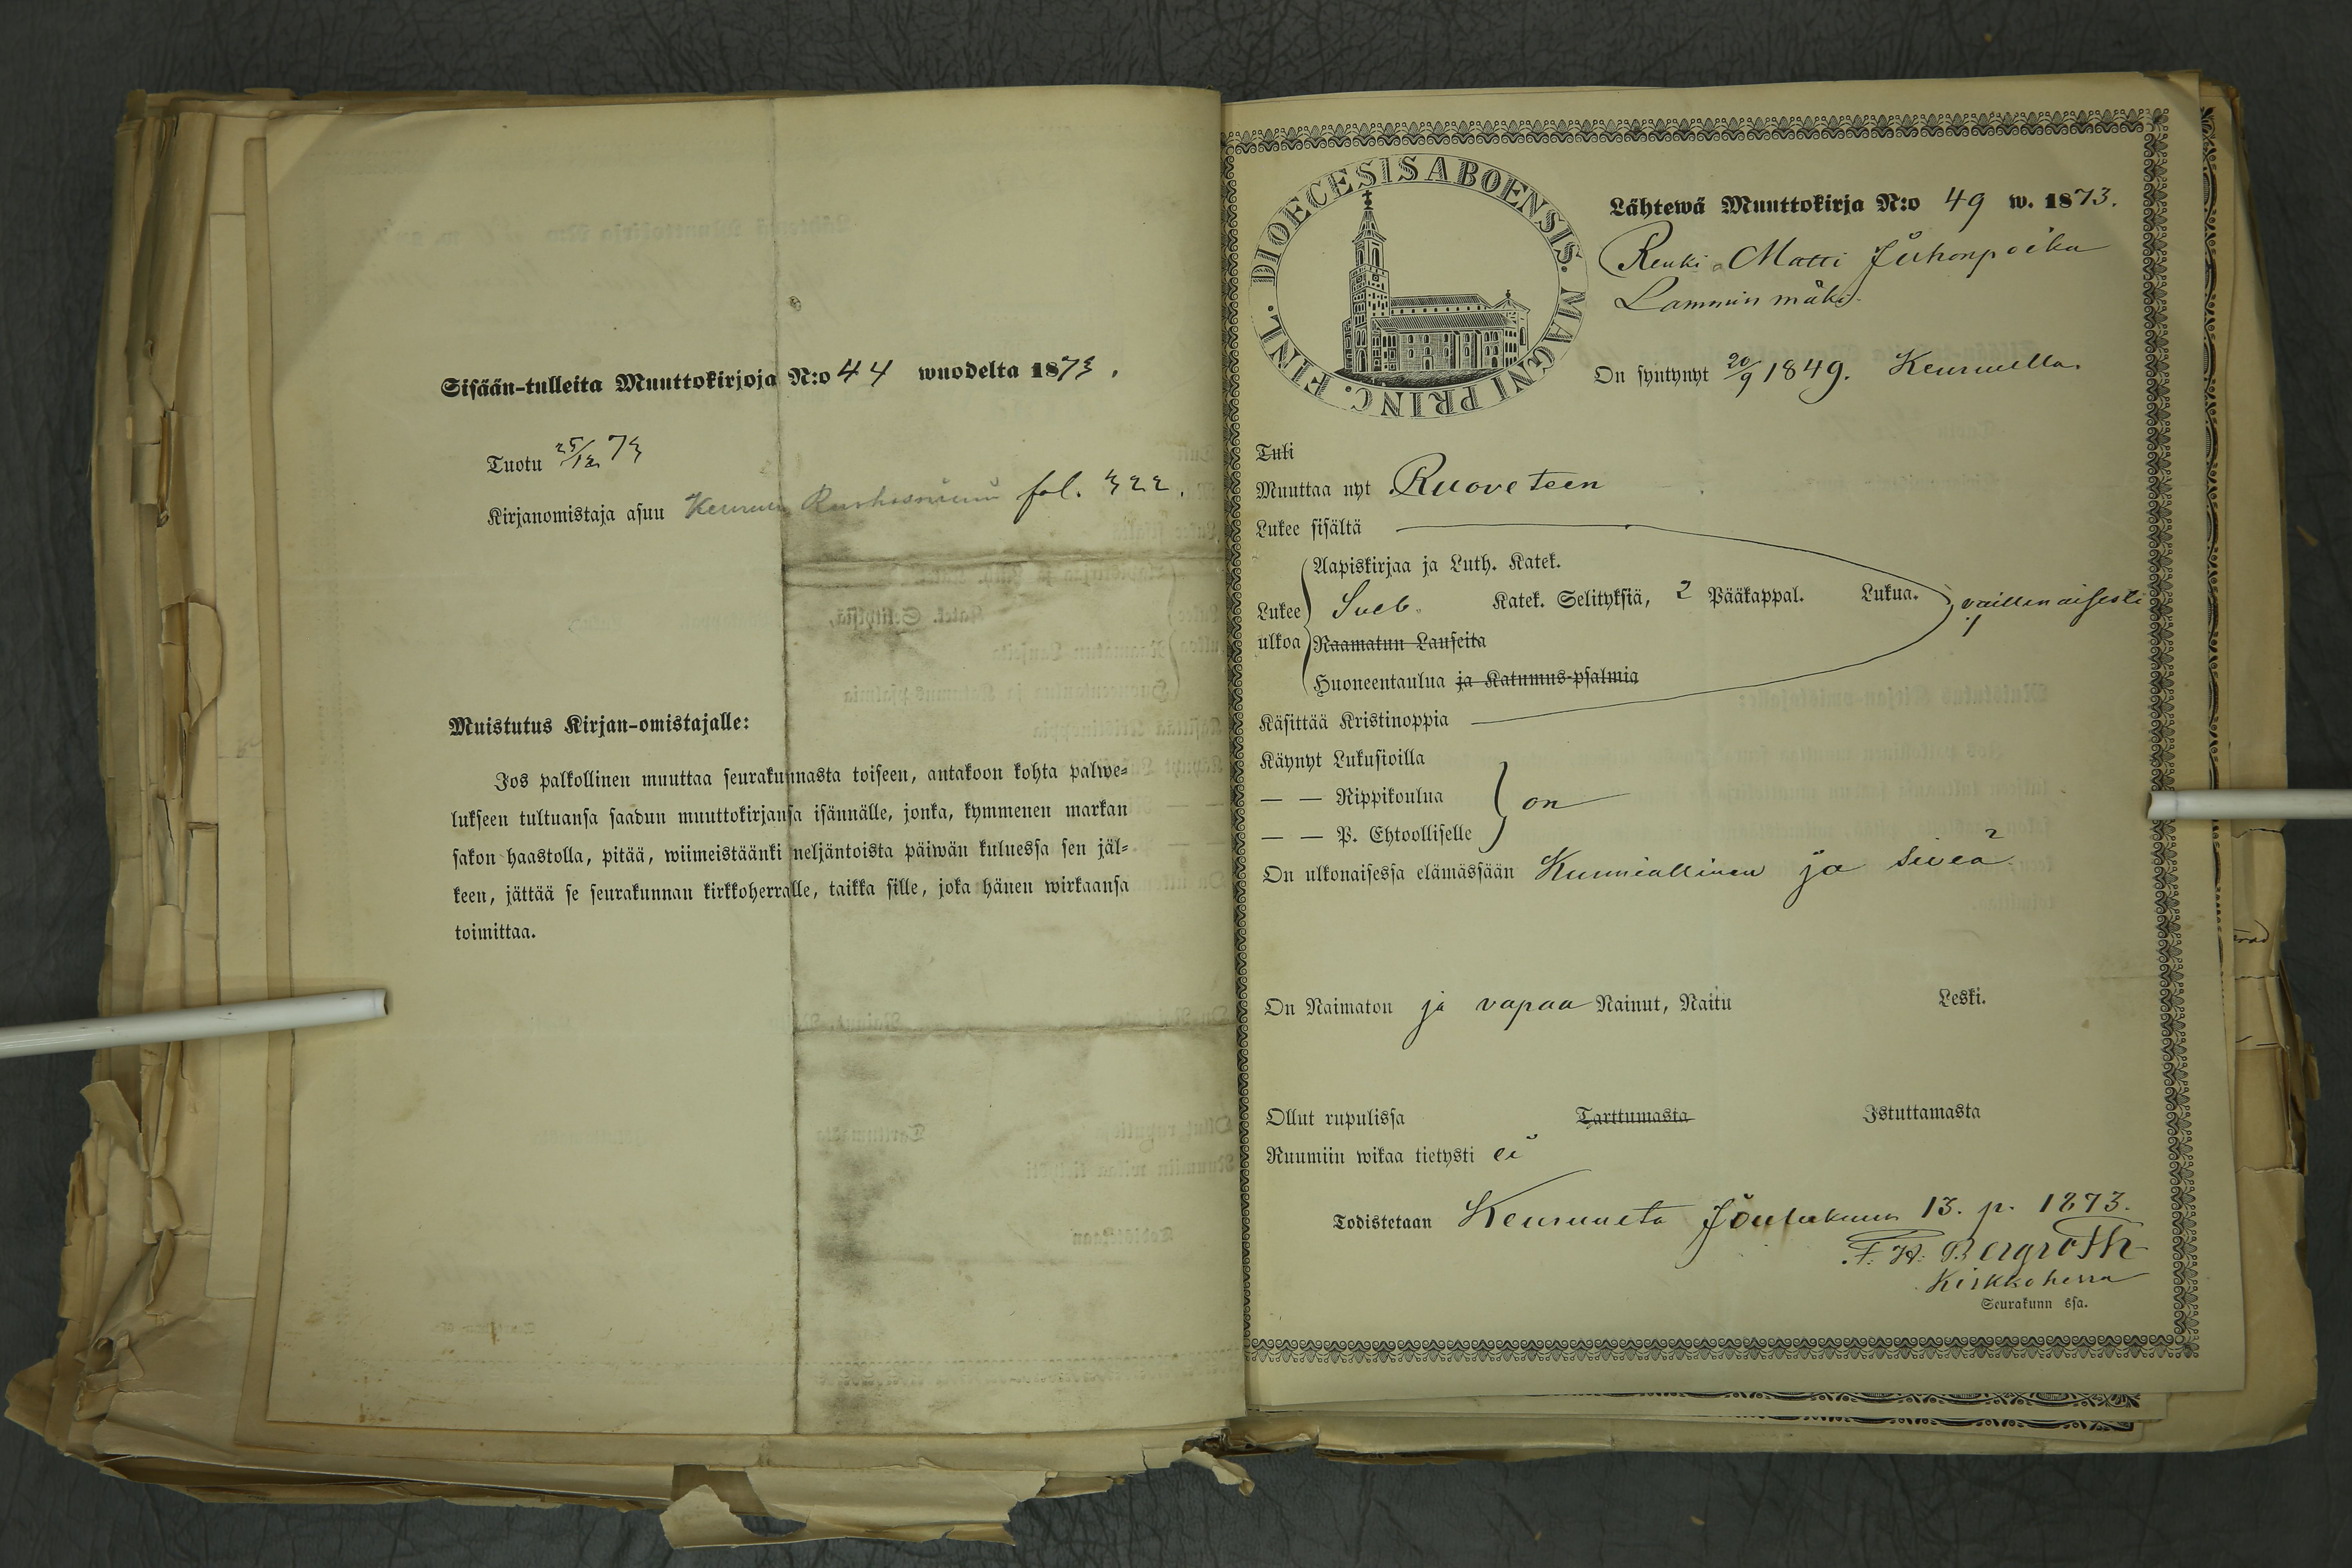 Sisään-tulleita Muuttokirjoja N:o 44 wuodelta 1873.
Tuotu 25/12 73
Kirjanomistaja asuu Keuruu fol. 322.
Muistutus Kirjan-omistajalle:
Jos palkollinen muuttaa seurakunnasta toiseen, antakoon kohta palwe-
lukseen tultuansa saadun muuttokirjansa isännälle, jonka, kymmenen markan
sakon haastolla, pitää, wiimeistäänki neljäntoista päiwän kuluessa sen jäl-
keen, jättää se seurakunnan kirkkoherralle, taikka sille, joka hänen wirkaansa
toimittaa.
DIOECESIS ABOENSIS. MAGNI PRINC. FINL.
Lähtewä Muuttokirja N:o 49 w. 1873.
Renki Matti Juhonpoika
Lamminmäki.
On syntynyt 20/9 1849. Keuruulla.
Tuli
Muuttaa nyt Ruoveteen
Lukee sisältä
Aapiskirjaa ja Luth. Katek.
Lukee Sveb. Katek. Selityksiä, 2 Pääkappal. Lukua. vaillinaisesti
ulkoa Raamatun Lauseita
Huoneentaulua ja Katumus-psalmia
Käsittää Kristinoppia
Käynyt Lukusioilla
— — Rippikoulua on
— — P. Ehtoolliselle
On ulkonaisessa elämässään Kunniallinen ja siveä
On Naimaton ja vapaa Nainut, Naitu Leski.
Ollut rupulissa Tarttumasta Istuttamasta
Ruumiin wikaa tietysti ei
Todistetaan Keuruulta Joulukuun 13. p. 1873.
F. H. Bergroth
Kirkkoherra
Seurakunn ssa.